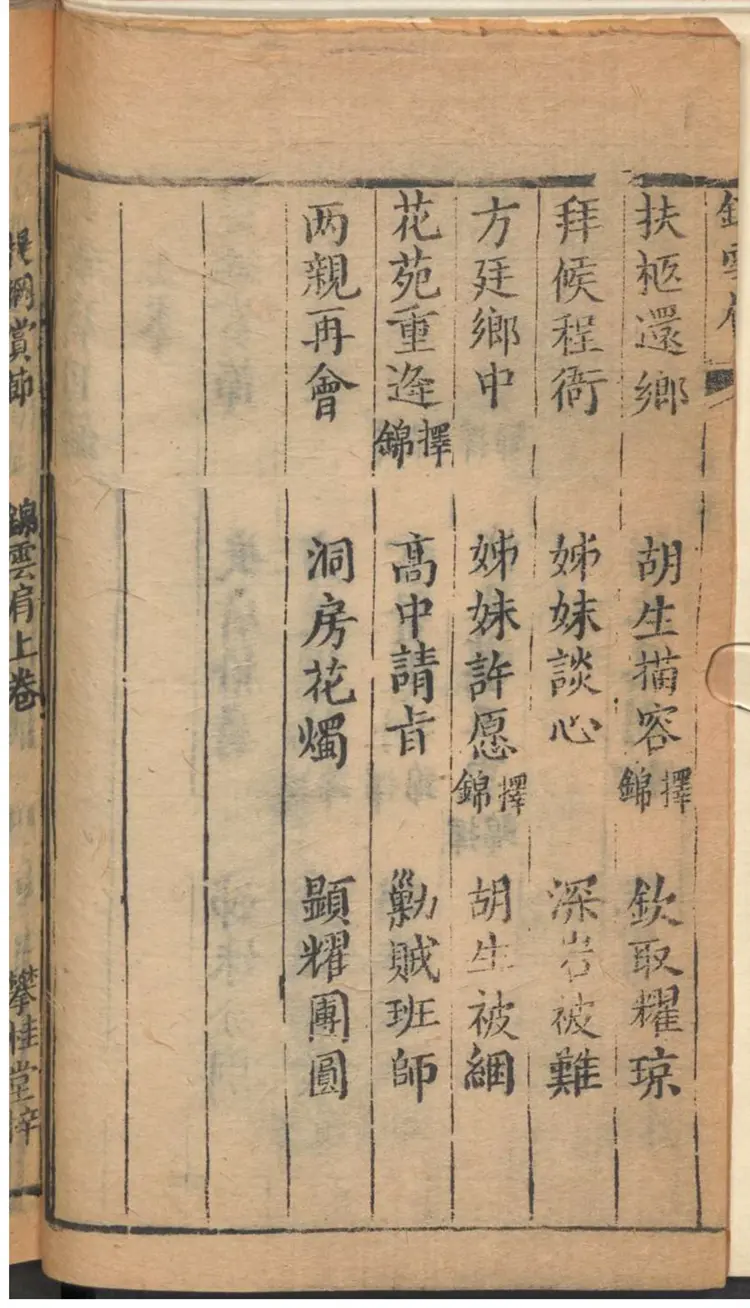 扶柩還鄉 胡生描容擇錦 欽取耀琼
拜候程衙 姊妹談心 深岩被難
方廷鄉中 姊妹許愿擇錦 胡生被綑
花苑重逢擇錦 高中請旨 勦賊班師
两親再會 洞房花燭 顕耀團圓
提綱賞節 錦雲肩上卷 攀桂堂梓